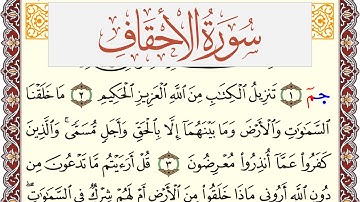 سُورَةُ الأَحْقَافِ
جمٓ ١ تَنزِيلُ ٱلْكِتَٰبِ مِنَ ٱللَّهِ ٱلْعَزِيزِ ٱلْحَكِيمِ ٢ مَا خَلَقْنَا
ٱلسَّمَٰوَٰتِ وَٱلْأَرْضَ وَمَا بَيْنَهُمَآ إِلَّا بِٱلْحَقِّ وَأَجَلٍ مُّسَمًّى ۚ وَٱلَّذِينَ
كَفَرُوا۟ عَمَّآ أُنذِرُوا۟ مُعْرِضُونَ ٣ قُلْ أَرَءَيْتُم مَّا تَدْعُونَ مِن
دُونِ ٱللَّهِ أَرُونِى مَاذَا خَلَقُوا۟ مِنَ ٱلْأَرْضِ أَمْ لَهُمْ شِرْكٌ فِى ٱلسَّمَٰوَٰتِ ۖ